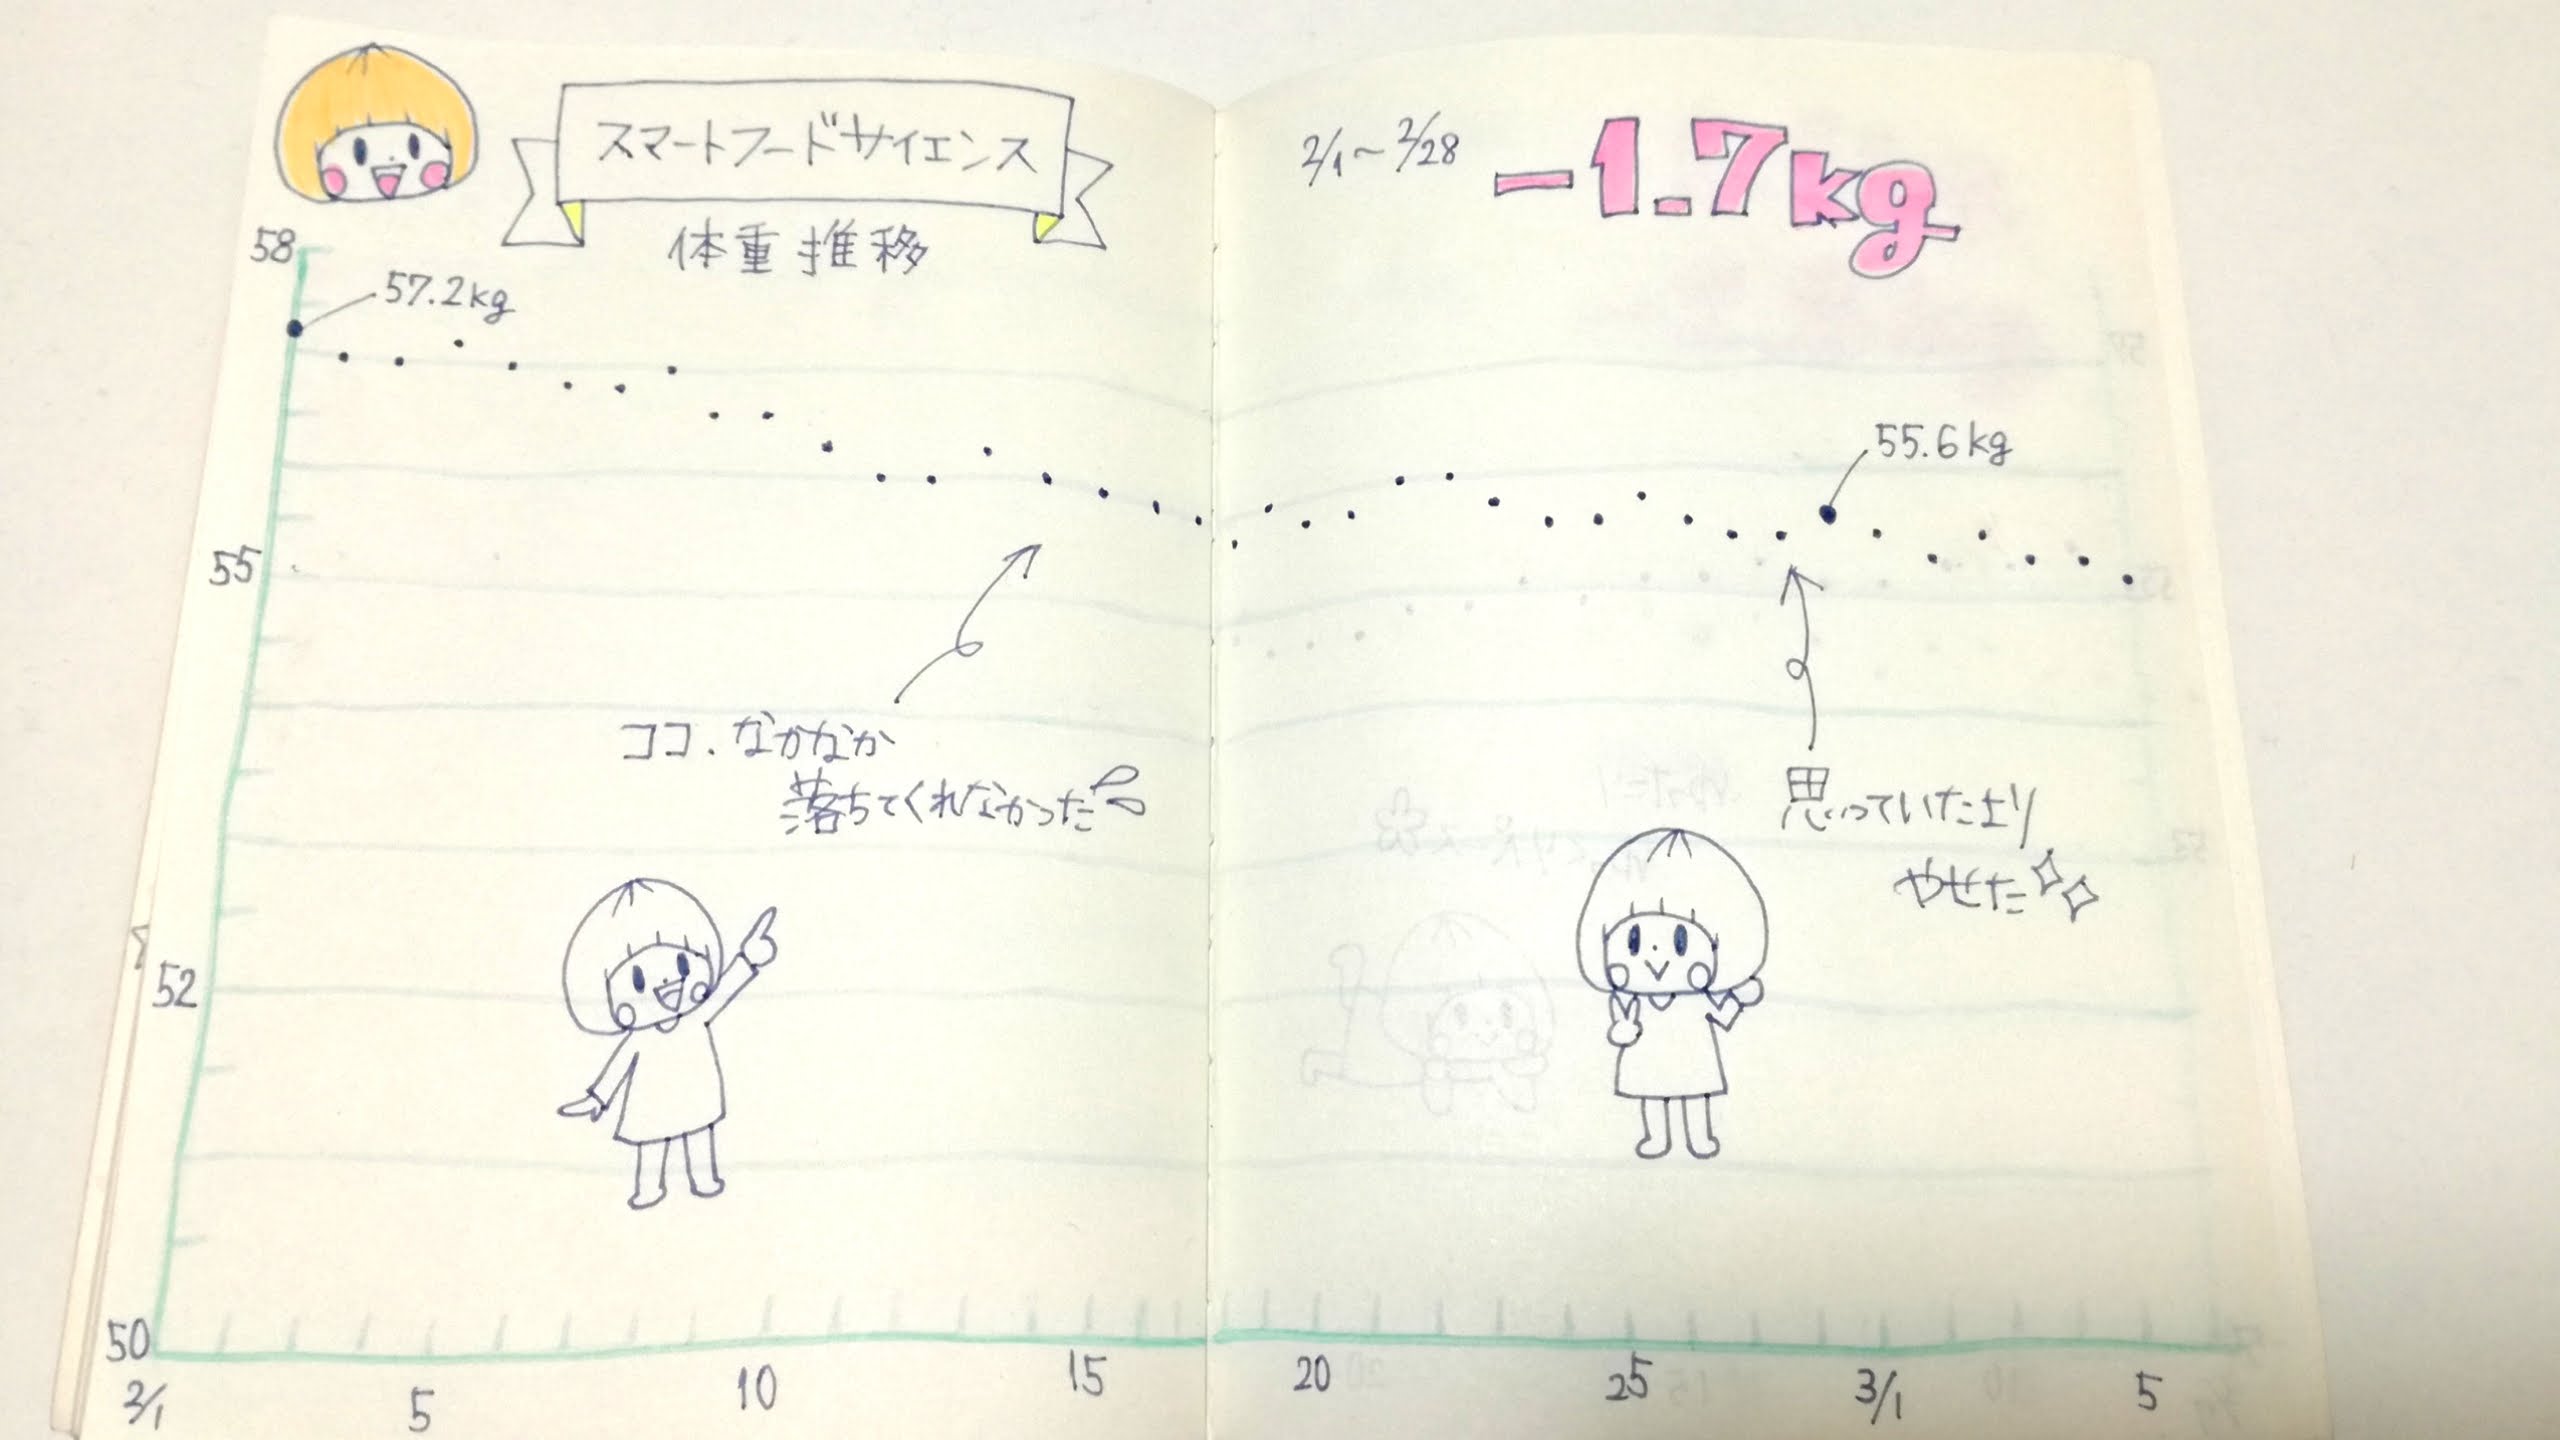 スマートフードサイエンス
体重推移
2/1〜2/28 -1.7kg
58
57.2kg
55.6kg
55
ココ、なかなか
落ちてくれなかった
思っていたより
やせた
52
50
2/1 5 10 15 20 25 3/1 5